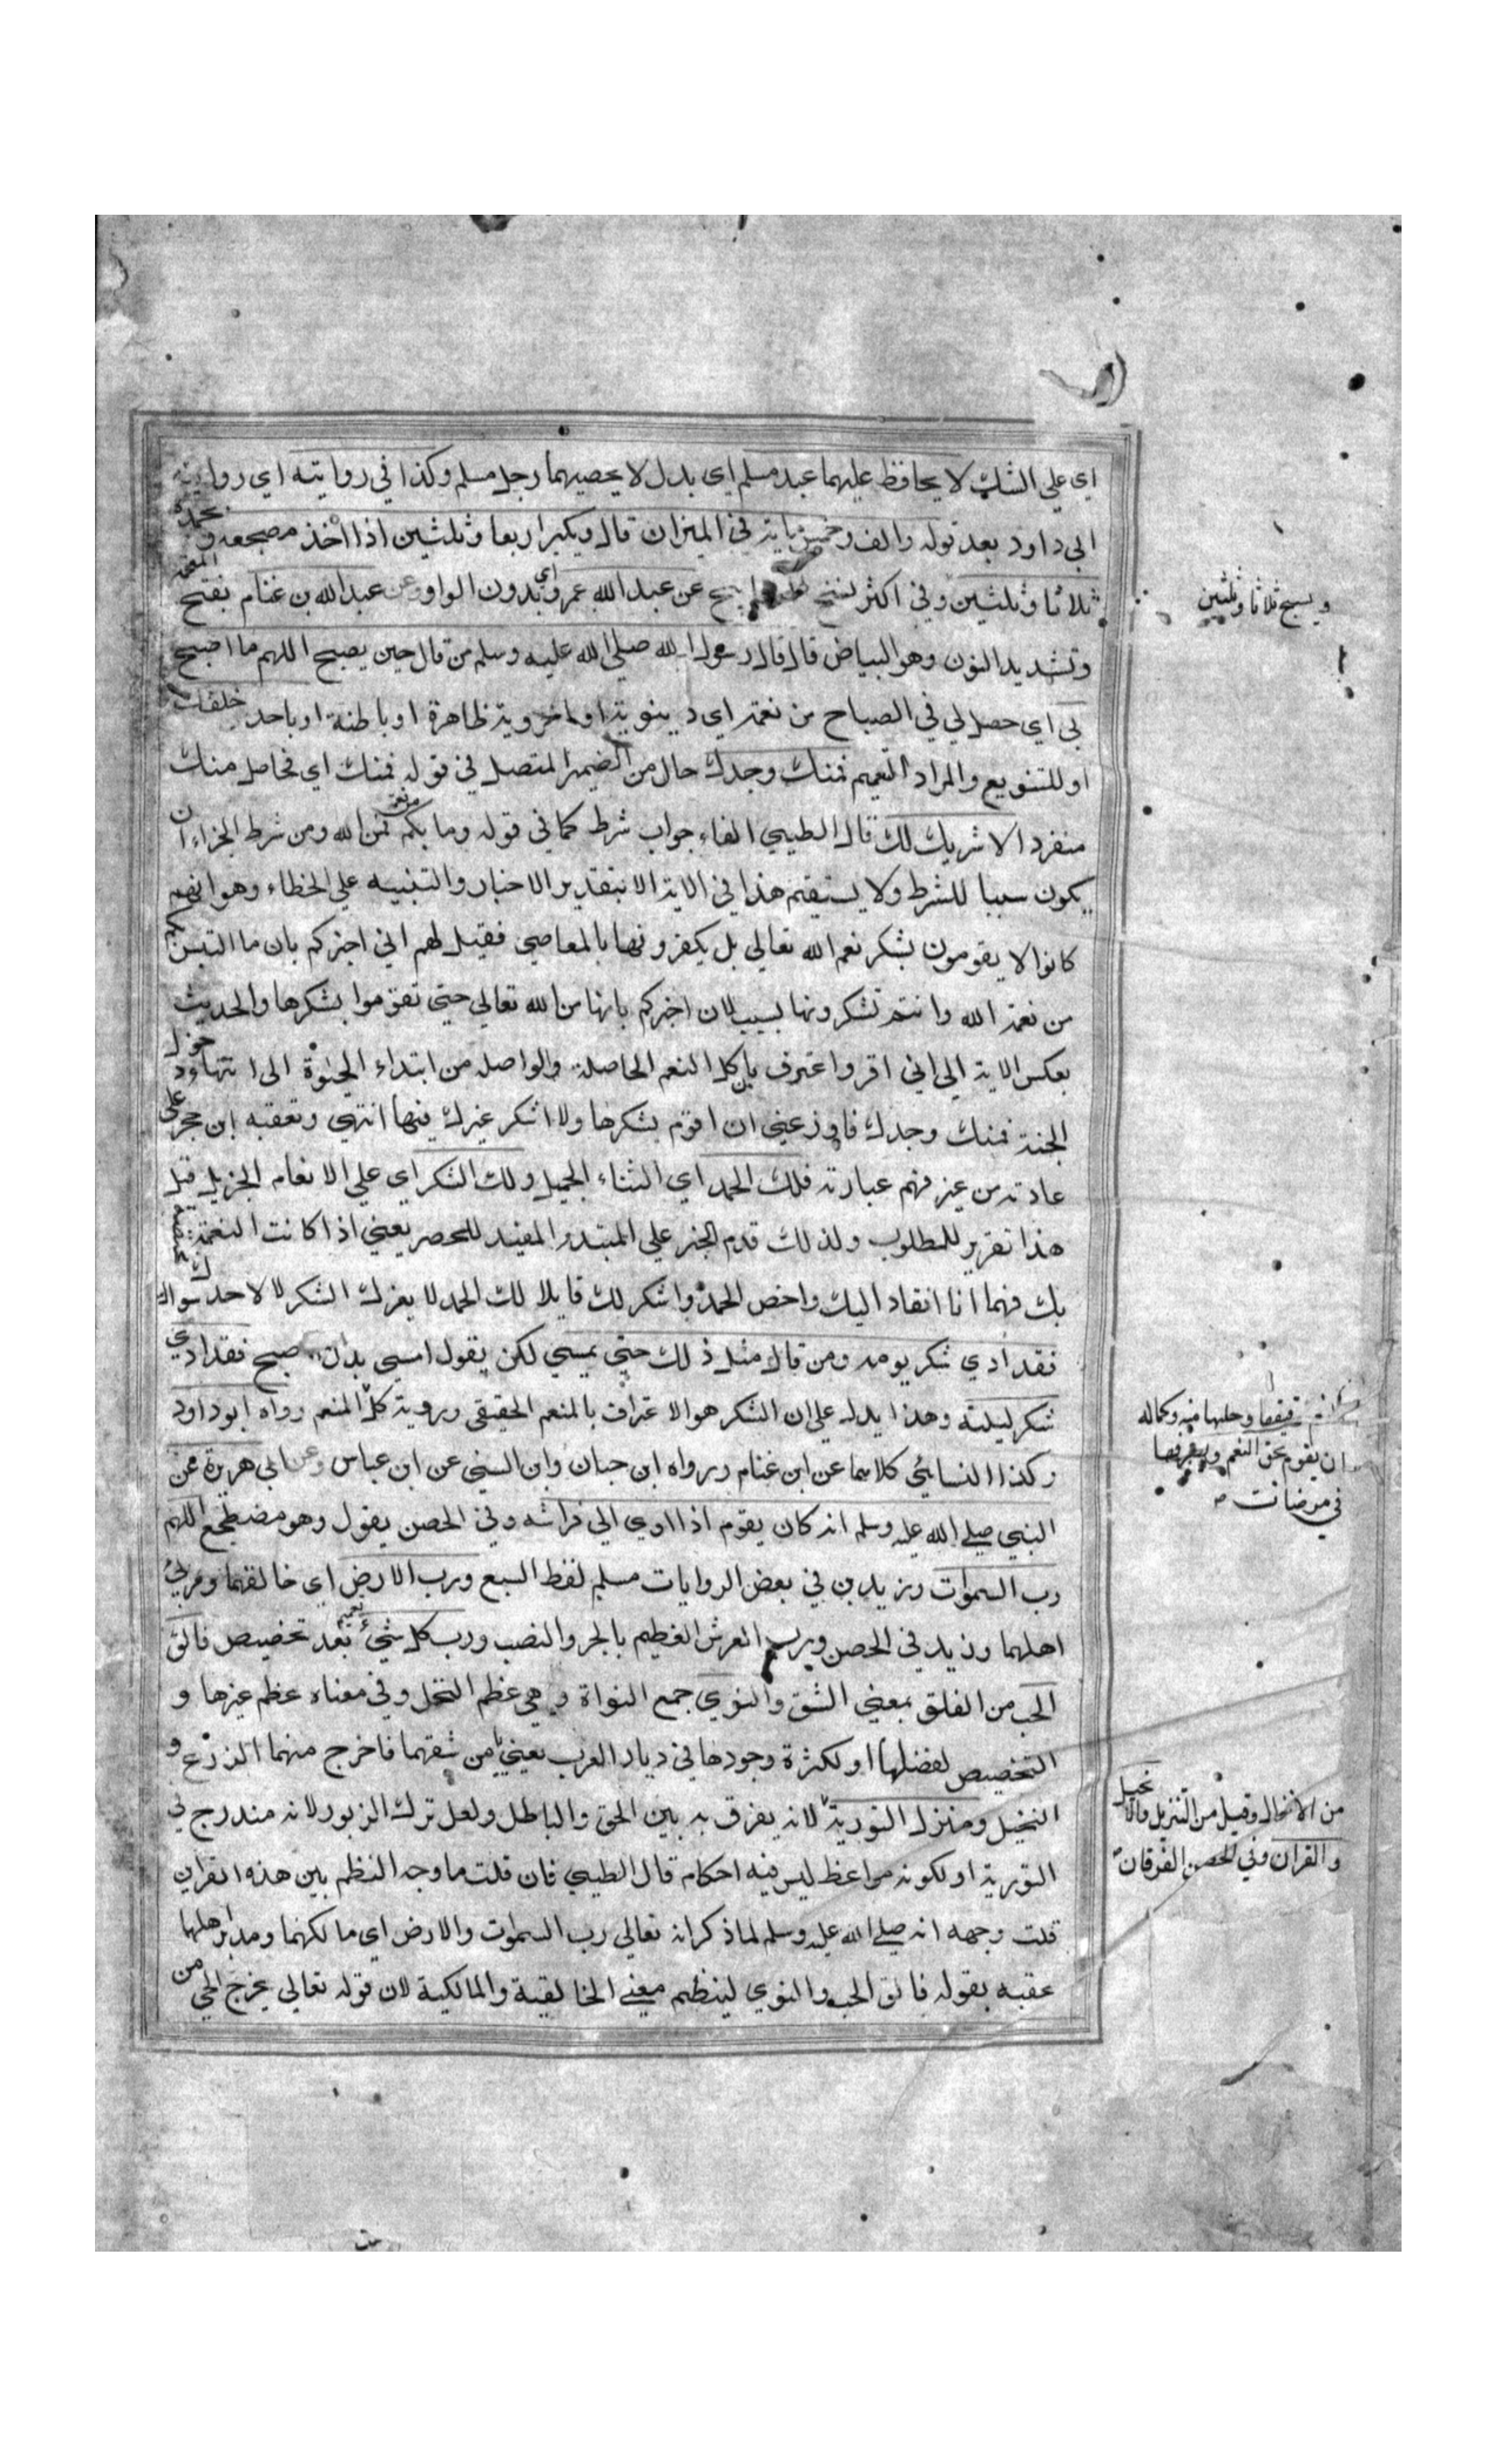 اي علي الشك لا يحافظ عليهما عبد مسلم اي بدل لا يحصيهما رجل مسلم وكذا في روايته اي رواية
ابي داود بعد قوله والف وخمسمائة في الميزان قال ويكبر اربعا وثلثين اذا اخذ مضجعه ويحمد
ثلاثا وثلثين وفي اكثر نسخ عن عبد الله عمرو اي بدون الواو وعن عبد الله بن غنام بفتح المعجمة
وتشديد النون وهو البياض قال قال رسول الله صلي الله عليه وسلم من قال حين يصبح اللهم ما اصبح
بي اي حصل لي في الصباح من نعمة اي دينوية او اخروية ظاهرة او باطنة او باحد خلقك
او للتنويع والمراد التعميم فمنك وحدك حال من الضمير المتصل في قوله فمنك اي فحاصل منك
منفردا لا شريك لك قال الطيبي الفاء جواب شرط كما في قوله وما بكم من نعمة فمن الله ومن شرط الجزاء ان
يكون سببا للشرط ولا يستقيم هذا في الاية الا بتقدير الاخبار والتنبيه علي الخطاء وهو انهم
كانوا لا يقومون بشكر نعم الله تعالي بل يكفرونها بالمعاصي فقيل لهم اني اخبركم بان ما التبس بكم
من نعمة الله وانتم تشكرونها بسبب لان اخبركم بانها من الله تعالي حتي تقوموا بشكرها والحديث
بعكس الاية الي اني اقر واعترف بان كل النعم الحاصلة والواصلة من ابتداء الحيوة الى انتهاء دخول
الجنة فمنك وحدك فاوزعني ان اقوم بشكرها ولا اشكر غيرك فيها انتهي وتعقبه ابن حجر علي
عادته من غير فهم عبارته فلك الحمد اي الثناء الجميل ولك الشكر اي علي الانعام الجزيل قيل
هذا تقرير للمطلوب ولذلك قدم الخبر علي المبتدا المفيد للحصر يعني اذا كانت النعمة مختصة
بك فها انا انقاد اليك واخص الحمد واشكر لك قايلا لك الحمد لا لغيرك ولك الشكر لا لاحد سواك
فقد ادي شكر يومه ومن قال مثل ذلك حتي يمسي لكن يقول امسي بدل اصبح فقد ادي
شكر ليلته وهذا يدل علي ان الشكر هو الاعتراف بالمنعم الحقيقي ورؤية كل المنعم رواه ابو داود
وكذا النسائي كلاهما عن ابن غنام ورواه ابن حبان وابن السني عن ابن عباس وعن ابي هريرة عن
النبي صلي الله عليه وسلم انه كان يقوم اذا اوي الي فراشه وفي الحصن يقول وهو مضطجع اللهم
رب السموات وزيد في بعض الروايات مسلم لفظ السبع ورب الارض اي خالقهما ومربي
اهلهما وزيد في الحصن ورب العرش العظيم بالجر والنصب ورب كل شيء تعميم بعد تخصيص فالق
الحب من الفلق بمعني الشق والنوي جمع النواة وهي عظم النخل وفي معناه عظم غيرها و
التخصيص لفضلها او لكثرة وجودها في ديار العرب يعني يا من شقهما فاخرج منهما الزرع و
النخيل ومنزل التورية لانه يفرق به بين الحق والباطل ولعل ترك الزبور لانه مندرج في
التورية او لكونه مواعظ ليس فيه احكام قال الطيبي فان قلت ما وجه النظم بين هذه القراين
قلت وجهه انه صلي الله عليه وسلم لما ذكر انه تعالي رب السموات والارض اي مالكهما ومدبر اهلها
عقبه بقوله فالق الحب والنوي لينظم معني الخالقية والمالكية لان قوله تعالي يخرج الحي من
ويسبح ثلاثا وثلثين
وحلها منه وكماله
ان يقوم بحق النعم ويصرفها
في مرضات
من الانزال وقيل من التنزيل والانجيل
والقران وفي الحصن الفرقان